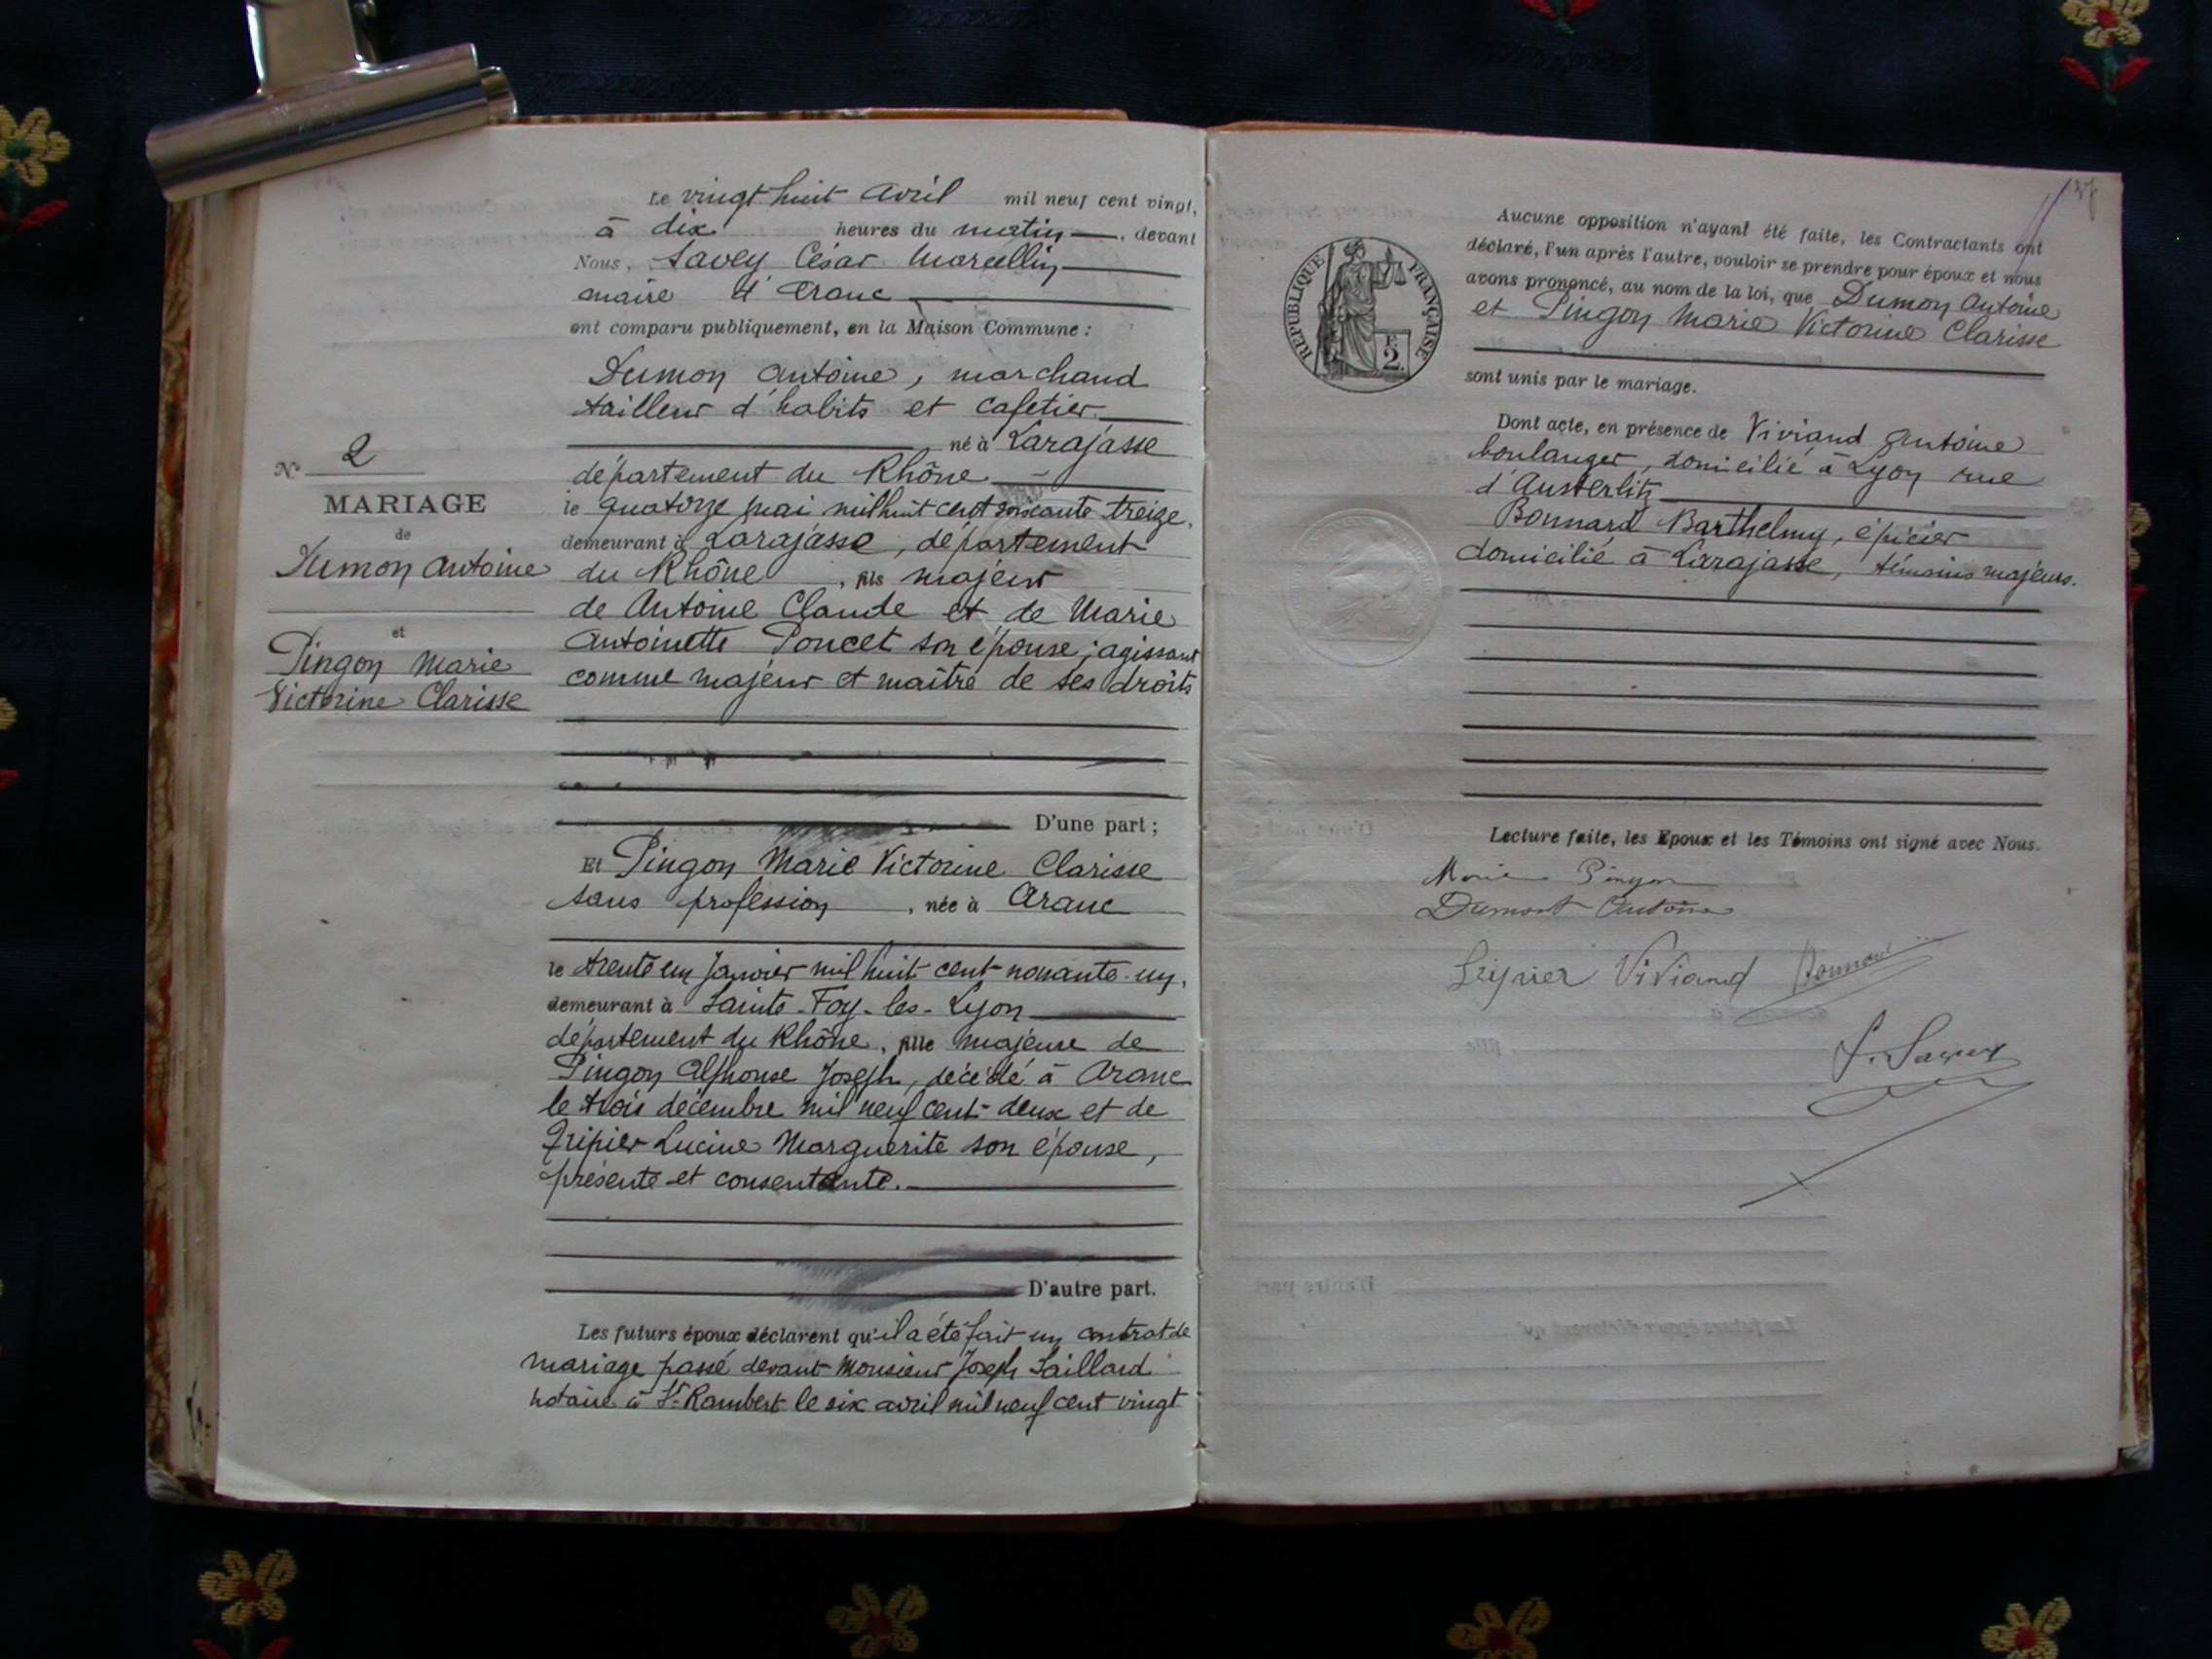 Le vingt huit avril mil neuf cent vingt,
à dix heures du matin, devant
Nous, Savey César Marcellin
maire d'Aranc
ont comparu publiquement, en la Maison Commune :
Dumon Antoine, marchand
tailleur d'habits et cafetier
né à Larajasse
département du Rhône
le quatorze mai mil huit cent soixante treize,
demeurant à Larajasse, département
du Rhône, fils majeur
de Antoine Claude et de Marie
Antoinette Poncet son épouse; agissant
comme majeur et maître de ses droits
D'une part ;
N° 2
MARIAGE
de
Dumon Antoine
et
Pingon Marie
Victorine Clarisse
Et Pingon Marie Victorine Clarisse
sans profession, née à Aranc
le trente un Janvier mil huit cent nonante-un,
demeurant à Sainte-Foy-les-Lyon
département du Rhône, fille majeure de
Pingon Alphonse Joseph, décédé à Aranc
le trois décembre mil neuf cent deux et de
Lucine Marguerite son épouse,
présente et consentante.
D'autre part.
Les futurs époux déclarent qu'il a été fait un contrat de
mariage passé devant Monsieur Joseph Saillard
notaire à St Rambert le six avril mil neuf cent vingt
RÉPUBLIQUE FRANÇAISE
F.
2.
Aucune opposition n'ayant été faite, les Contractants ont
déclaré, l'un après l'autre, vouloir se prendre pour époux et nous
avons prononcé, au nom de la loi, que Dumon Antoine
et Pingon Marie Victorine Clarisse
sont unis par le mariage.
Dont acte, en présence de Viviand Antoine
boulanger, domicilié à Lyon rue
d'Austerlitz
Bonnard Barthelmy, épicier
domicilié à Larajasse, témoins majeurs.
Lecture faite, les Epoux et les Témoins ont signé avec Nous.
Marie Pingon
Dumont Antoine
Viviand Bonnard